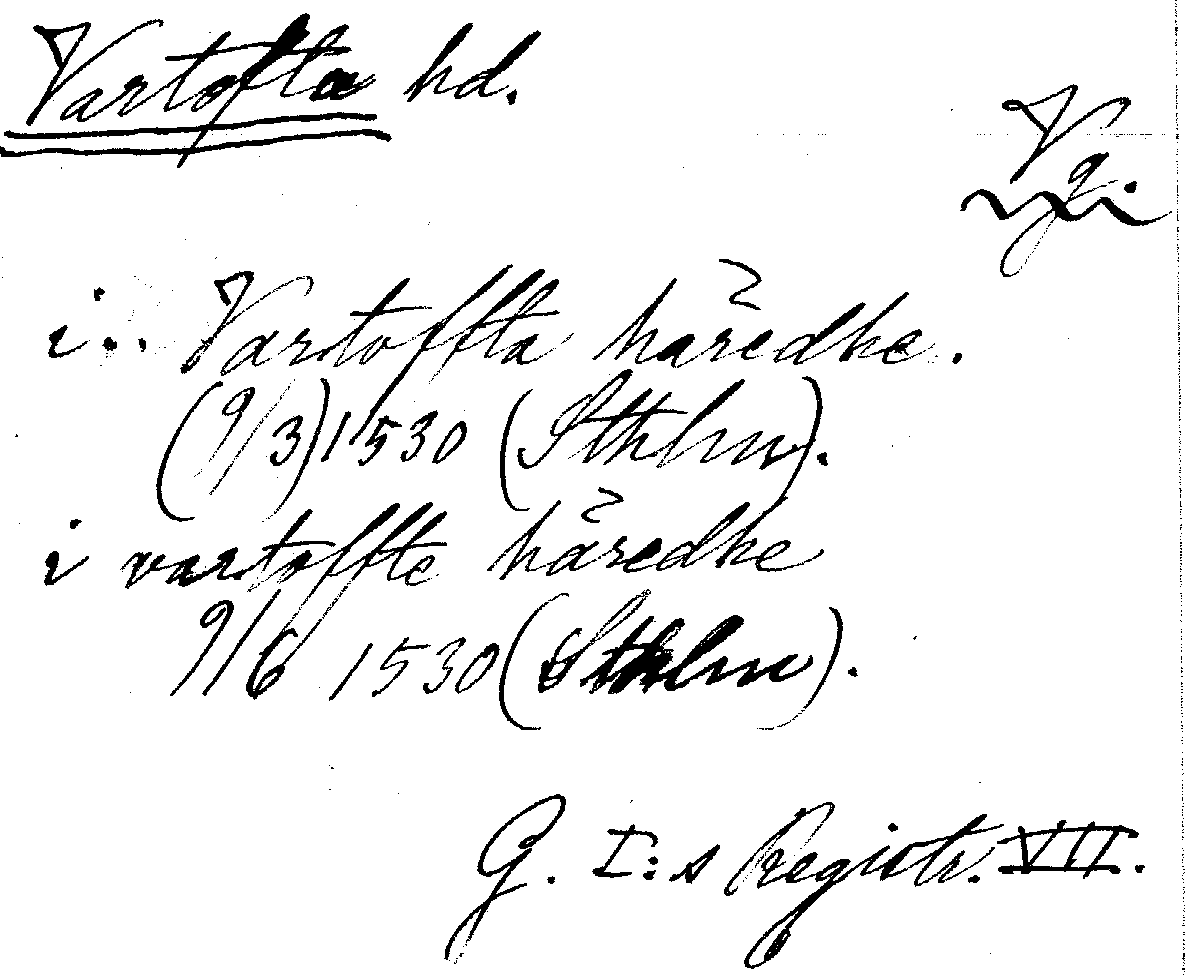 Vartofta hd.
Vg.
i .. Vartoffta häredhe.
(9/3) 1530 (Sthlm).
i vartoffte häredhe
9/6 1530 (Sthlm).
G. I:s Registr. VII.